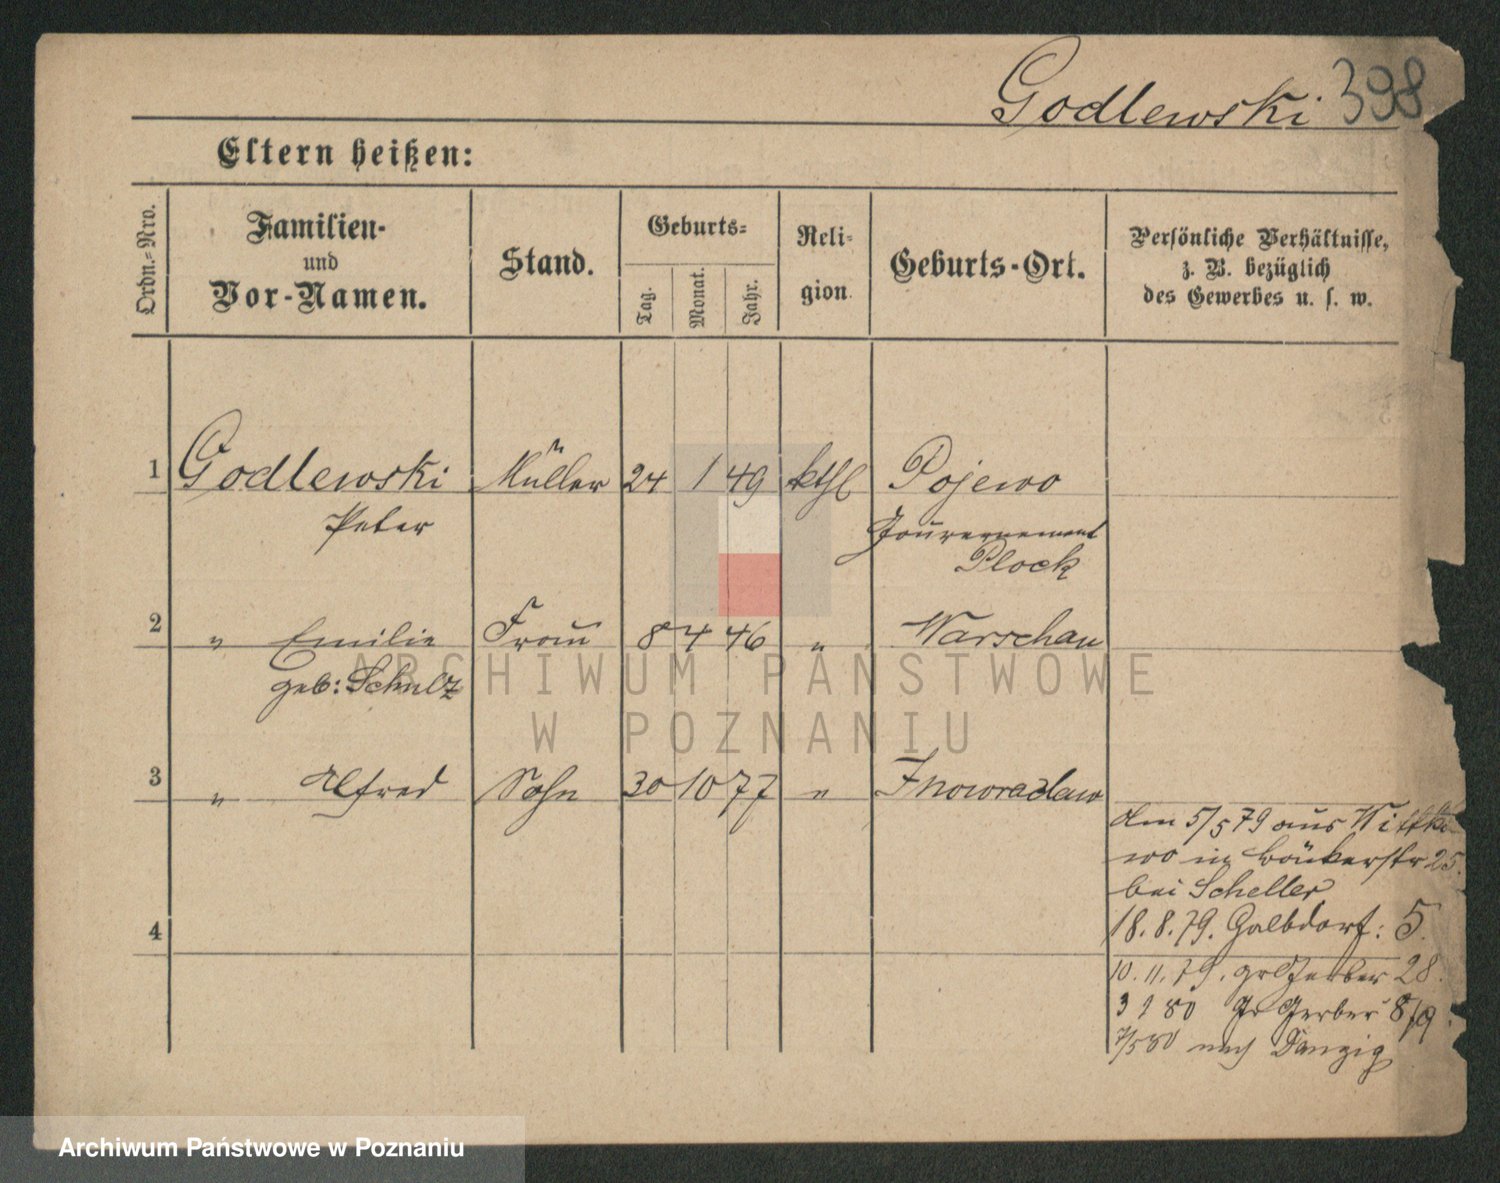 Godlewski 398
Eltern heißen:
Ordn.-Nro.
Familien-
und
Vor-Namen.
Stand.
Geburts-
Tag.
Monat.
Jahr.
Reli-
gion.
Geburts-Ort.
Persönliche Verhältnisse,
z. B. bezüglich
des Gewerbes u. s. w.
1 Godlewski Müller 24 1 49 kthl Pojewo
Peter Gouvernement
Plock
2 " Emilie Frau 8 4 46 " Warschau
geb: Schulz
3 " Alfred Sohn 30 10 77 " Inowraclaw
den 5/5 79 aus Wittko
wo in Bäckerstr 25.
bei Scheller
4
18.8.79. Halbdorf: 5.
10.11.79. gr Gerber 28.
3 1 80 Gr Gerber 8/9.
7/5 80 nach Danzig
ARCHIWUM PAŃSTWOWE
W POZNANIU
Archiwum Państwowe w Poznaniu